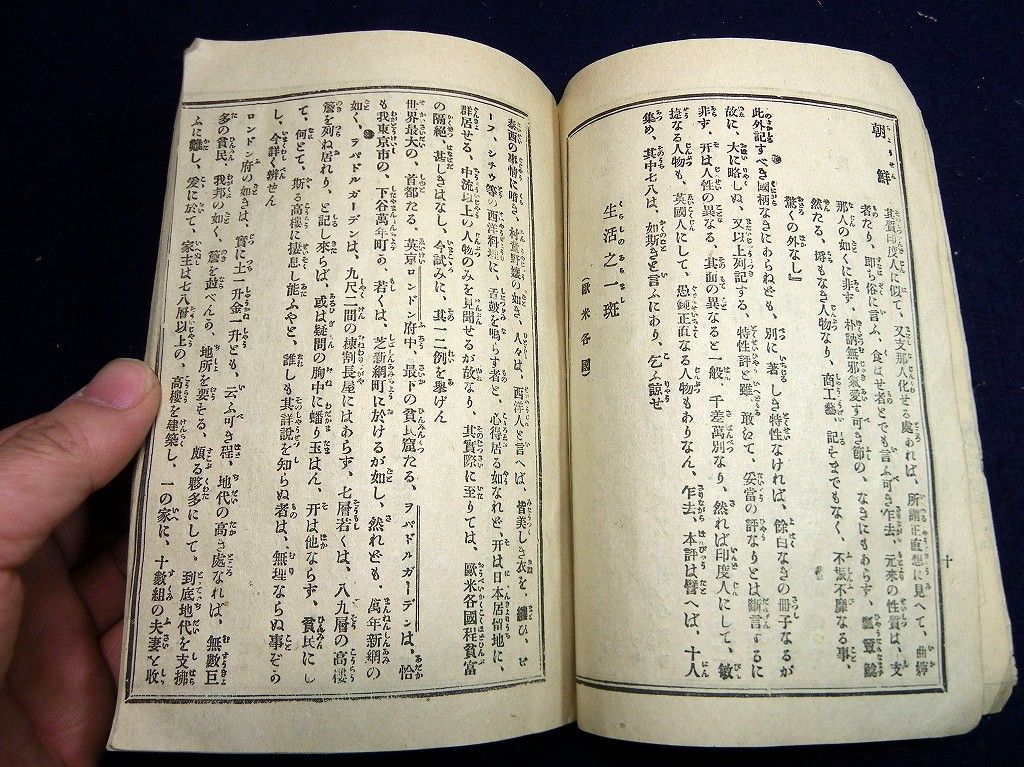 朝鮮
其質印度人に似て、又支那人化せる處あれば、所謂正直想に見へて、曲
者たり、即ち俗に言ふ、食はせ者とでも言ふ可き乍去、元來の性質は、支
那人の如くに非ず、朴訥無邪氣愛す可き節の、なきにもあらず、瓢
然たる、埓もなき人物なり、商工藝、記そまでもなく、不振不靡なる事、
驚くの外なし』
此外記すべき國柄なきにあらねども、別に著しき特性なければ、餘白なきの冊子なるが
故に、大に略しぬ、又以上列記する、特性評と雖、敢ねて、妥當の評なりとは斷言するに
非す、开は人性の異なる、其面の異なると一般、千差萬別なり、然れば印度人にして、敏
捷なる人物も、英國人にして、愚鈍正直なる人物もありなん、乍去、本評は譬へば、十人
集め、其中七八は、如斯きと言ふにあり、乞ふ諒せ
生活之一斑
(歐米各國)
十
泰西の事情に暗き、村童野孃の如き、人々は、西洋人と言へば、皆美しき衣を、纏ひ、ビ
ーフ、シチウ等の西洋料理に、舌鼓を鳴らす者と、心得居る如なれど、开は日本居留地に、
群居せる、中流以上の人物のみを見聞せるが故なり、其實際に至りては、歐米各國程貧富
の隔絶、甚しきはなし、今試みに、其一二例を擧げん
世界最大の、首都たる、英京ロンドン府中、最下の貧民窟たる、ヲパドルガーデンは、恰
も我東京市の、下谷萬年町、若くは、芝新網町に於けるが如し、然れども、萬年新網の
如く、ヲパドルガーデンは、九尺二間の棟割長屋にはあらず、七層若くは、八九層の高樓
簷を列ね居れり、と記し來らば、或は疑問の胸中に蟠り玉はん、开は他ならず、貧民にし
て、何とて、斯る高樓に捿息し能ふやと、誰しも其詳說を知らぬ者は、無理ならぬ事ぞの
し、今詳く辨せん
ロンドン府の如きは、實に土一升金一升とも、云ふ可き程、地代の高き處なれば、無數巨
多の貧民、我邦の如く、簷を並べんう、地所を要そる、頗る夥多にして。到底地代を支拂
ふに難し、爰に於て、家主は七八層以上の、高樓を建築し、一の家に、十數組の夫妻を收